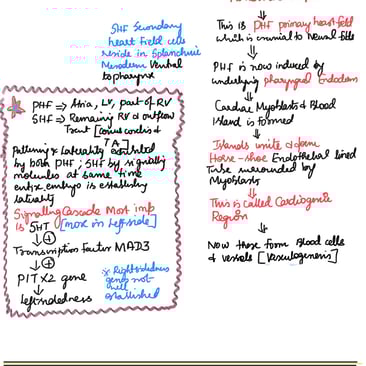 SHF Secondary
heart Field cells
reside in Splanchnic
Mesoderm Ventral
to pharynx
PHF ⇒ Atria, LV, part of RV
SHF ⇒ Remaining RV & outflow
Tract [conus cordis &
TA]
Patterning & Laterality exhibited
by both PHF; SHF by signalling
molecules at same time
entire embryo is establishing
laterality
Signalling Cascade Most imp
is 5HT [more in Leftside]
↓ (+)
Transcription factor MAD3
↓ (+)
PITX2 gene
↓
Leftsidedness
* Right sidedness
genes not
well
established
This is PHF primary heart field
which is crucial to Neural folds
↓
PHF is now induced by
underlying pharyngeal Endoderm
↓
Cardiac Myoblasts & Blood
Island is formed
↓
Islands unite & form
Horse-shoe Endothelial lined
Tube surrounded by
Myoblasts
↓
This is called Cardiogenic
Region
↓
Now these form Blood cells
& vessels [Vasculogenesis]